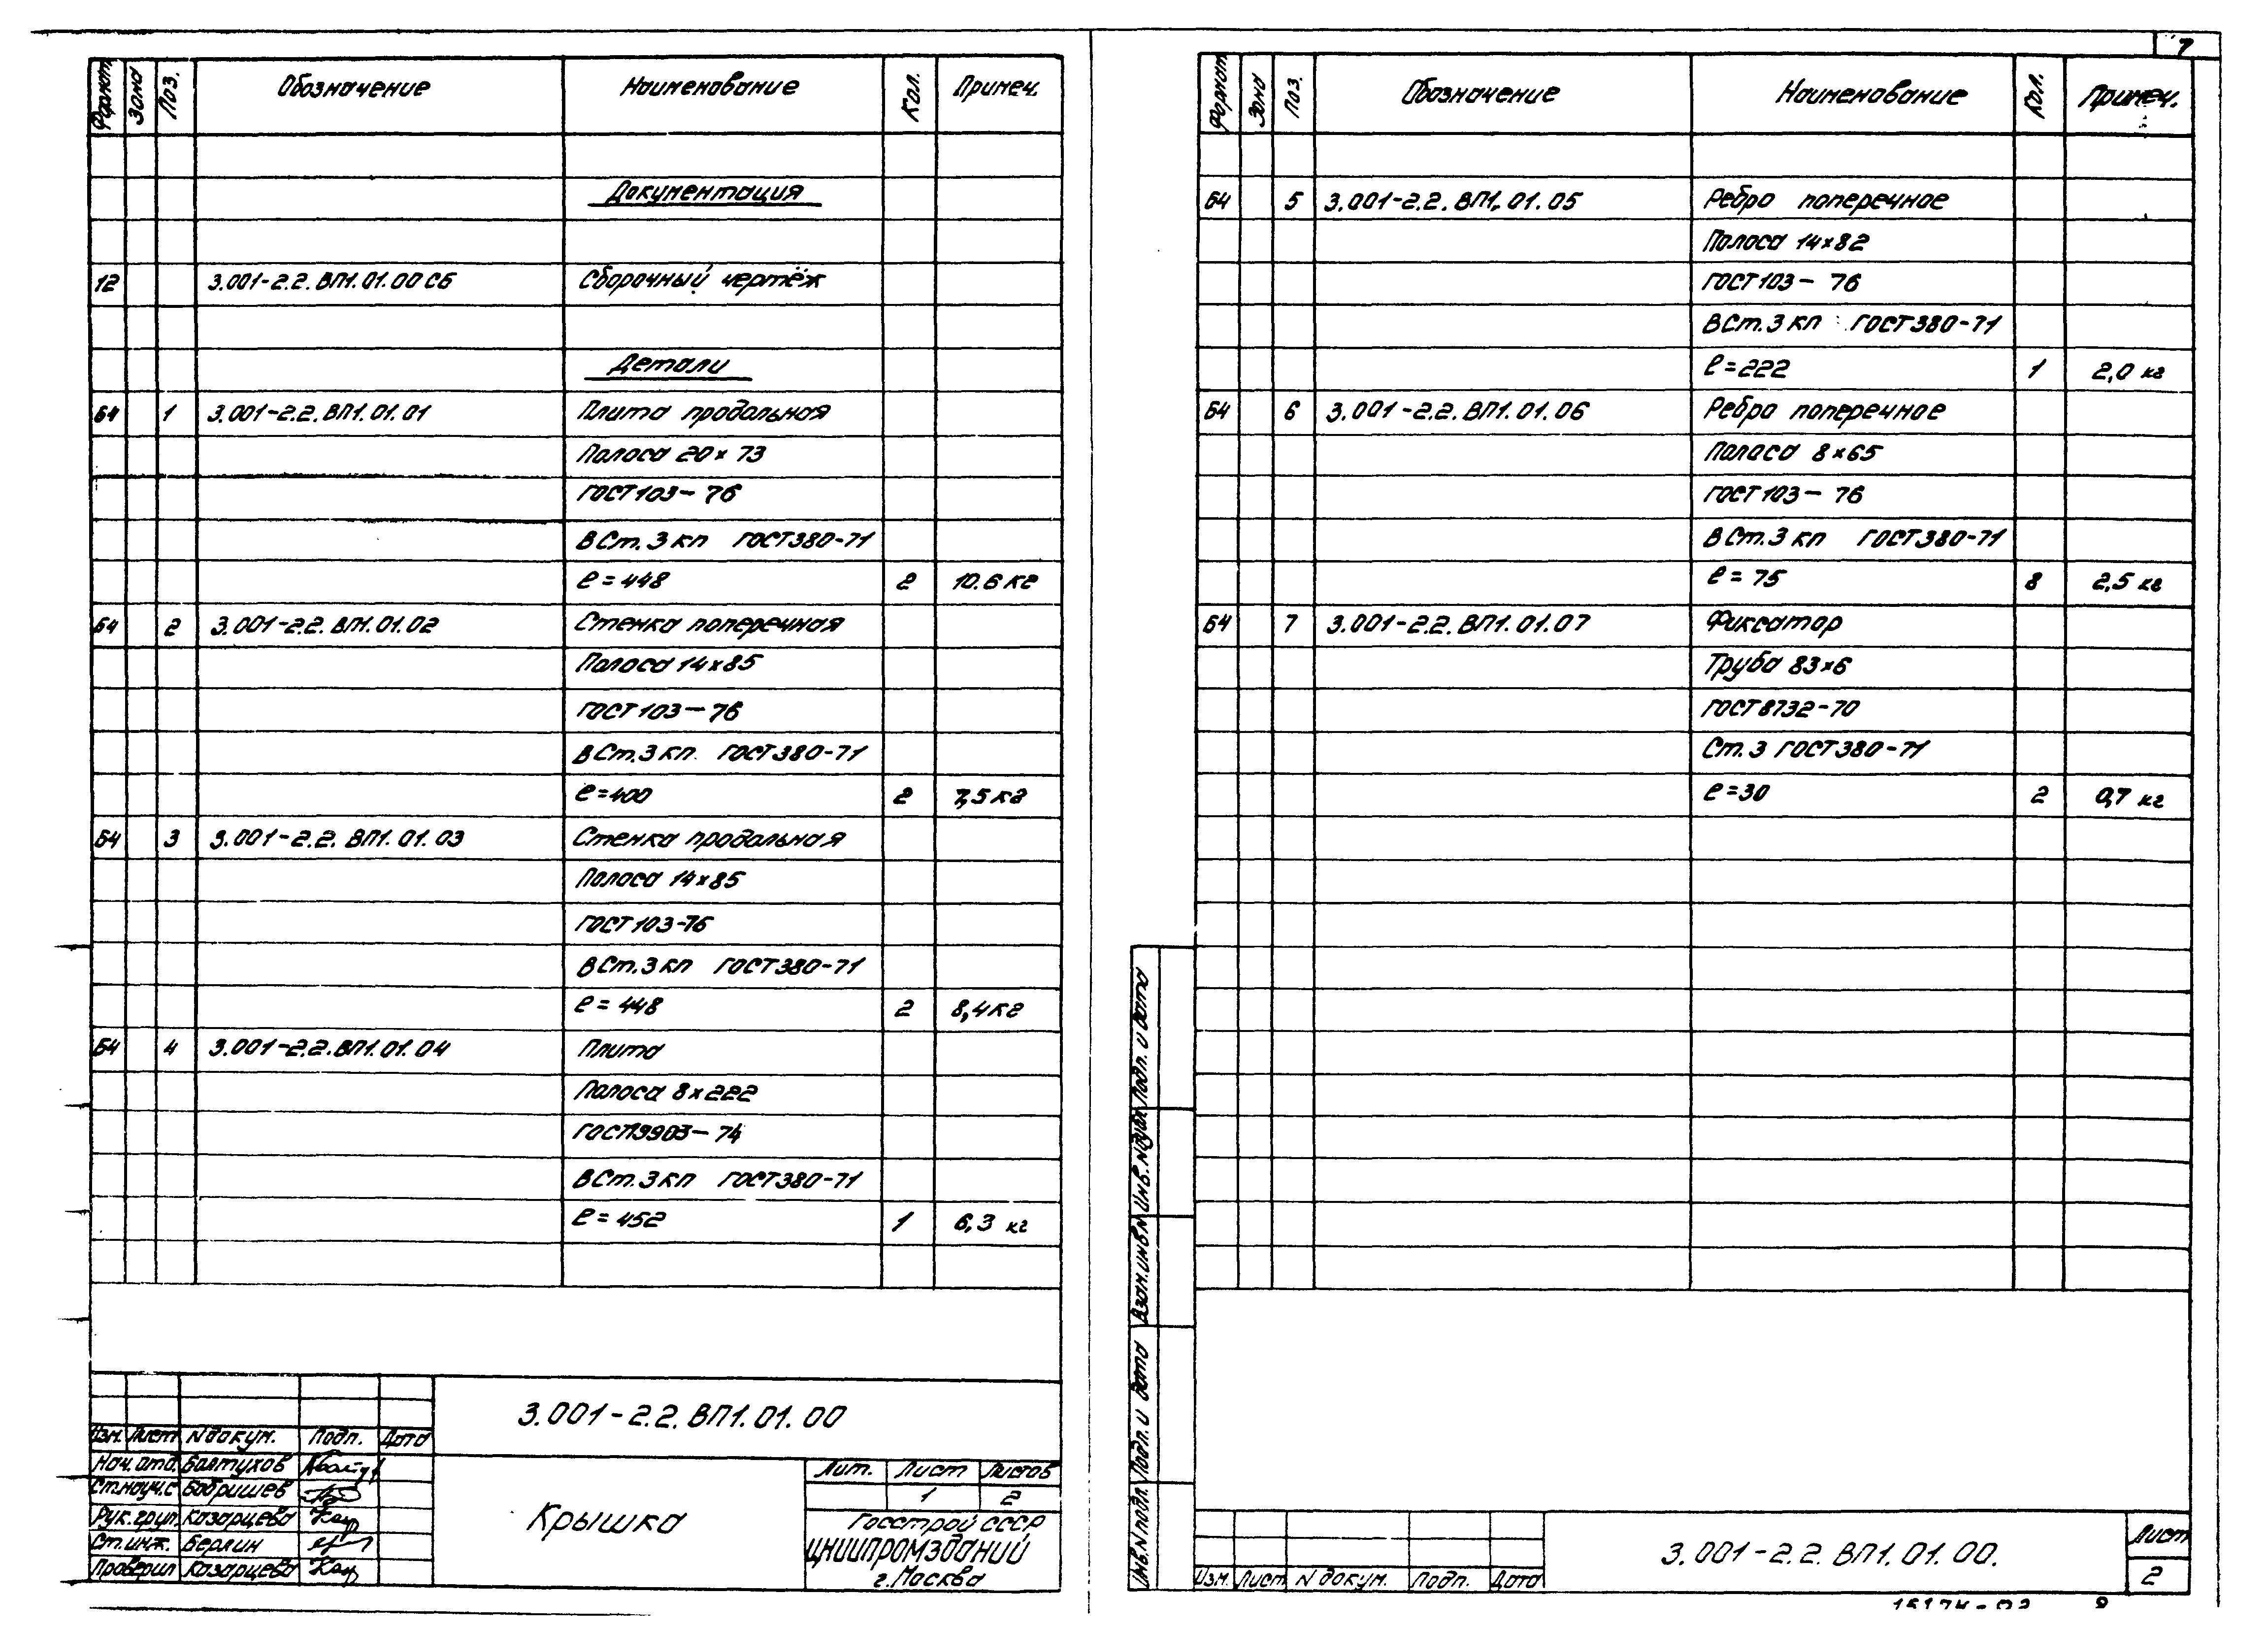 Формат Зона Поз. Обозначение Наименование Кол. Примеч.
Документация
12 3.001-2.2.ВП1.01.00 СБ Сборочный чертёж
Детали
Б4 1 3.001-2.2.ВП1.01.01 Плита продольная
Полоса 20×73
ГОСТ 103-76
ВСт.3кп ГОСТ 380-71
ℓ=448 2 10.6 кг
Б4 2 3.001-2.2.ВП1.01.02 Стенка поперечная
Полоса 14×85
ГОСТ 103-76
ВСт.3кп ГОСТ 380-71
ℓ=400 2 7,5 кг
Б4 3 3.001-2.2.ВП1.01.03 Стенка продольная
Полоса 14×85
ГОСТ 103-76
ВСт.3кп ГОСТ 380-71
ℓ=448 2 8,4 кг
Б4 4 3.001-2.2.ВП1.01.04 Плита
Полоса 8×222
ГОСТ 19903-74
ВСт.3кп ГОСТ 380-71
ℓ=452 1 6,3 кг
3.001-2.2.ВП1.01.00
Изм. Лист N докум. Подп. Дата
Нач.отд. Болтухов
Ст.науч.с Бобришев
Рук.груп. Казарцева
Ст.инж. Берлин
Проверил Казарцева
Крышка
Лит. Лист Листов
1 2
Госстрой СССР
ЦНИИПРОМЗДАНИЙ
г.Москва
7
Формат Зона Поз. Обозначение Наименование Кол. Примеч.
Б4 5 3.001-2.2.ВП1.01.05 Ребро поперечное
Полоса 14×82
ГОСТ 103-76
ВСт.3кп ГОСТ 380-71
ℓ=222 1 2,0 кг
Б4 6 3.001-2.2.ВП1.01.06 Ребро поперечное
Полоса 8×65
ГОСТ 103-76
ВСт.3кп ГОСТ 380-71
ℓ=75 8 2,5 кг
Б4 7 3.001-2.2.ВП1.01.07 Фиксатор
Труба 83×6
ГОСТ 8732-70
Ст.3 ГОСТ 380-71
ℓ=30 2 0,7 кг
Инв.N подл. Подп. и дата Взам.инв.N Инв.N дубл. Подп. и дата
Изм. Лист N докум. Подп. Дата
3.001-2.2.ВП1.01.00.
Лист
2